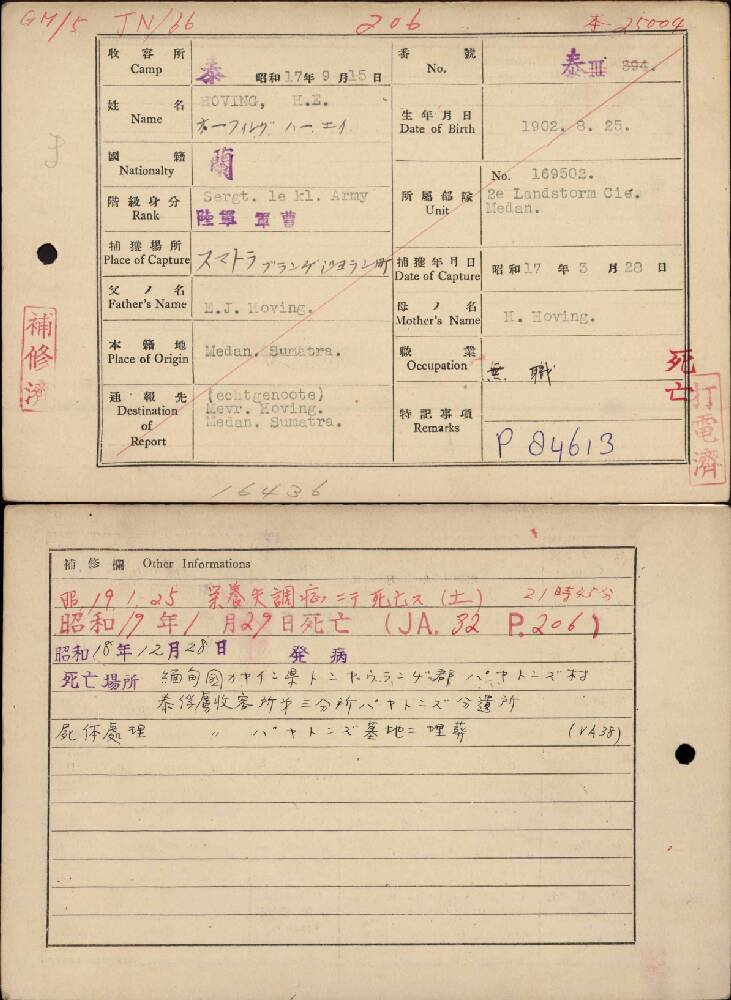 GM/5 JN/66 206 本-25004
收容所 Camp 泰 昭和17年9月15日
番號 No. 泰III 394.
姓名 Name HOVING, H.E.
ホーフィング、ハー、エイ
生年月日 Date of Birth 1902. 8. 25.
國籍 Nationality 蘭
階級身分 Rank Sergt. 1e kl. Army
陸軍 軍曹
所屬部隊 Unit No. 169502.
2e Landstorm Cie.
Medan.
捕獲場所 Place of Capture スマトラ
捕獲年月日 Date of Capture 昭和17年3月28日
父ノ名 Father's Name E.J. Hoving.
母ノ名 Mother's Name H. Hoving.
本籍地 Place of Origin Medan. Sumatra.
職業 Occupation 無職
通報先 Destination of Report (echtgenoote)
Mevr. Hoving.
Medan. Sumatra.
特記事項 Remarks P 84613
補修済
死亡
打電濟
16436
補修欄 Other Informations
昭19.1.25 栄養失調症ニテ死亡ス(土) 21時45分
昭和19年1月29日死亡 (JA. 32 P. 206)
昭和18年12月28日 発病
死亡場所 緬甸國カヤイン県トンヤウランゲ郡パヤトンズ村
泰俘虜收容所第三分所パヤトンズ分遣所
屍体處理 〃 パヤトンズ墓地ニ埋葬 (VA38)